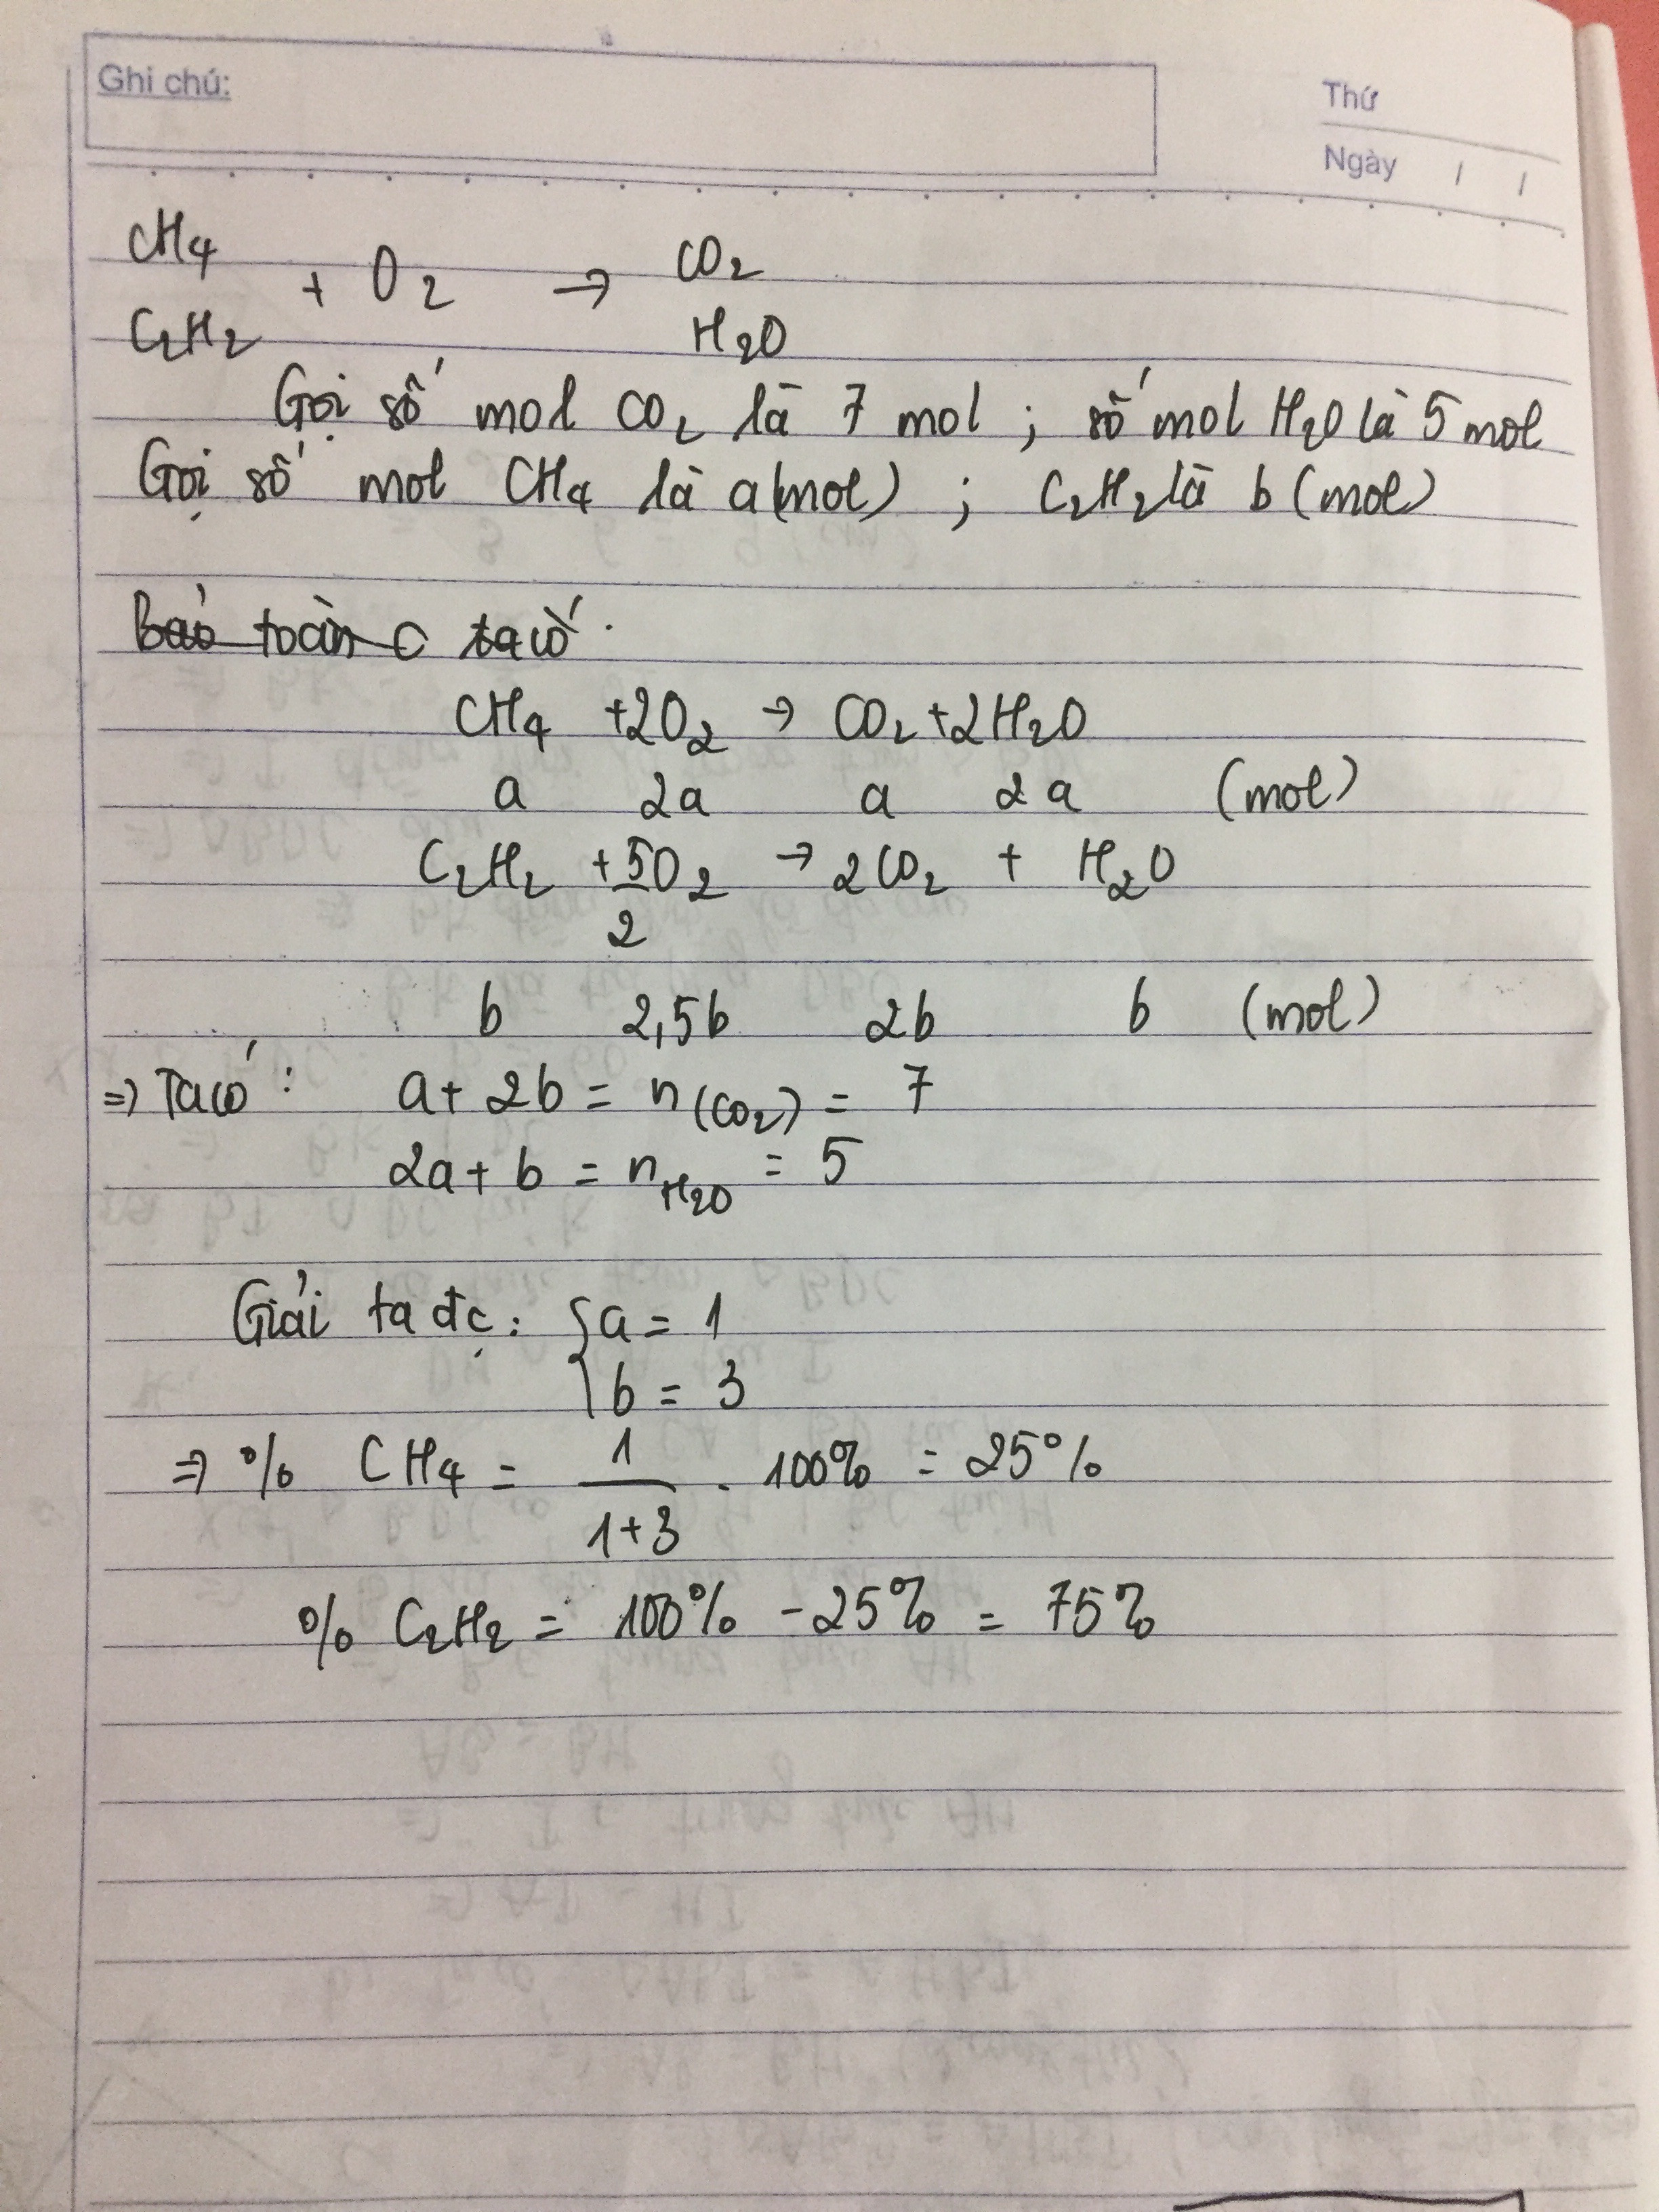 Ghi chú:
Thứ
Ngày / /
CH₄ + O₂ → CO₂
C₂H₂ H₂O
Gọi số mol CO₂ là 7 mol ; số mol H₂O là 5 mol
Gọi số mol CH₄ là a(mol) ; C₂H₂ là b (mol)
Bảo toàn C ta có
CH₄ +2O₂ → CO₂+2H₂O
a 2a a 2a (mol)
C₂H₂ + 5/2 O₂ → 2CO₂ + H₂O
b 2,5b 2b b (mol)
=> Ta có : a + 2b = n(CO₂) = 7
2a + b = nH₂O = 5
Giải ta đc : { a = 1
b = 3
=> % CH₄ = 1/(1+3) . 100% = 25%
% C₂H₂ = 100% - 25% = 75%